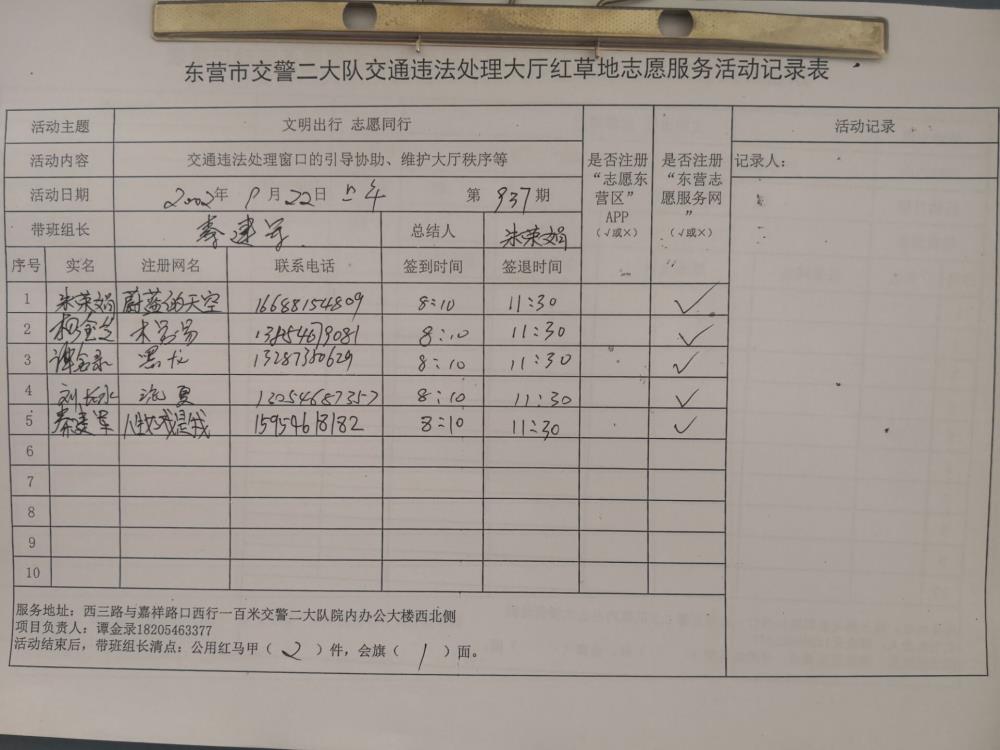 东营市交警二大队交通违法处理大厅红草地志愿服务活动记录表
活动主题 文明出行 志愿同行 是否注册“志愿东营区”APP(√或×) 是否注册“东营志愿服务网”(√或×) 活动记录
活动内容 交通违法处理窗口的引导协助、维护大厅秩序等 记录人：
活动日期 2002年 月22日 第 937 期
带班组长 秦建军 总结人 朱荣娟
序号 实名 注册网名 联系电话 签到时间 签退时间
1 朱荣娟 蔚蓝的天空 16688154809 8:10 11:30 √
2 8:10 11:30 √
3 谭金录 黑龙 13287350629 8:10 11:30 √
4 刘长水 13054687357 8:10 11:30 √
5 秦建军 15954618182 8:10 11:30 √
6
7
8
9
10
服务地址：西三路与嘉祥路口西行一百米交警二大队院内办公大楼西北侧
项目负责人：谭金录18205463377
活动结束后，带班组长清点：公用红马甲（ 2 ）件，会旗（ 1 ）面。